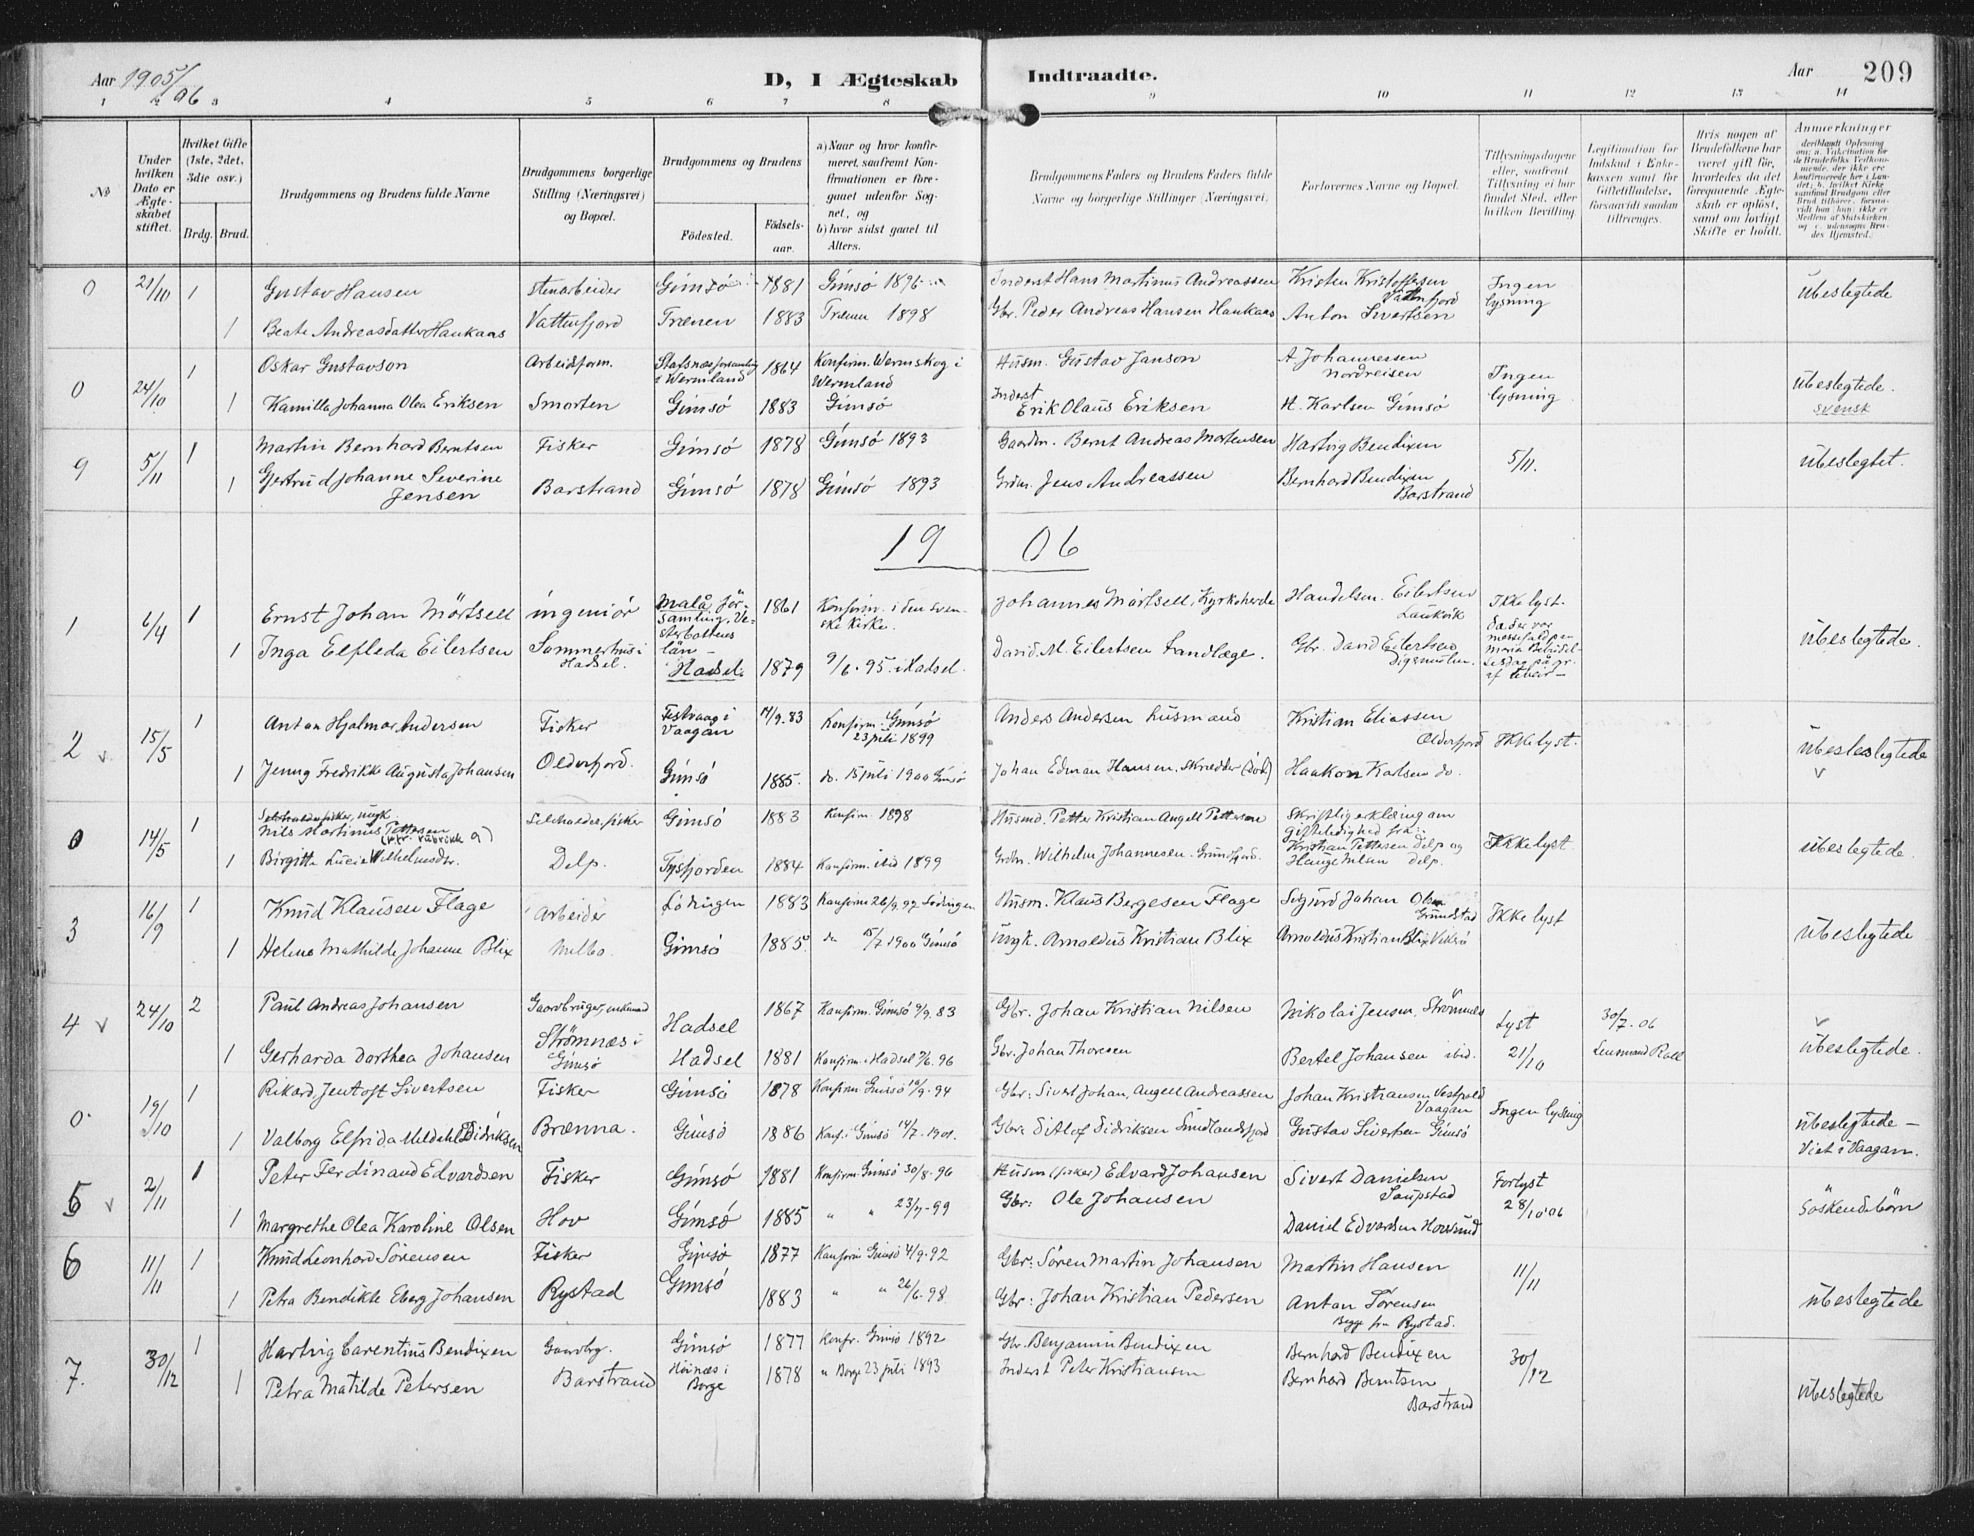 Aar 1905/06
D, I Ægteskab Indtraadte.
Aar 209
1 2 3 4 5 6 7 8 9 10 11 12 13 14
No
Under hvilken Dato er Ægteskabet stiftet.
Hvilket Gifte (1ste, 2det, 3die osv.)
Brdg. Brud.
Brudgommens og Brudens fulde Navne
Brudgommens borgerlige Stilling (Næringsvei) og Bopæl.
Brudgommens og Brudens
Fødested. Fødselsaar.
a) Naar og hvor konfirmeret, saafremt Konfirmationen er foregaaet udenfor Sognet, og
b) hvor sidst gaaet til Alters.
Brudgommens Faders og Brudens Faders fulde Navne og borgerlige Stillinger (Næringsvei).
Forlovernes Navne og Bopæl.
Tillysningsdagene eller, saafremt Tillysning ei har fundet Sted, efter hvilken Bevilling.
Legitimation for Indskud i Enkekassen samt for Giftetilladelse, forsaavidt saadan tiltrænges.
Hvis nogen af Brudefolkene har været gift før, hvorledes da det foregaaende Ægteskab er opløst, samt om lovligt Skifte er holdt.
Anmerkninger
0 21/10 1 Gustav Hansen Stenarbeider Gimsö 1881 Gimsö 1896 Inderst Hans Martinus Andreassen Kristen Kristoffersen Vattenfjord Ingen lysning ubeslegtede
1 Beate Andreasdatter Haukaas Vattenfjord Trænen 1883 Trænen 1898 Gbr. Peder Andreas Hansen Haukaas Anton Sivertsen
0 24/10 1 Oskar Gustavson Arbeidform. Stafsnæsforsamling i Wermland 1864 Konfirm. Wermskog i Wermland Husm. Gustav Janson A Johannessen Nordreisen Ingen lysning ubeslegtede. svensk
1 Kamilla Johanna Olea Eriksen Smorten Gimsö 1883 Gimsö Inderst Erik Olaus Eriksen H. Karlsen Gimsö
9 5/11 1 Martin Bernhard Berntsen Fisker Gimsö 1878 Gimsö 1893 Gaardm. Bernt Andreas Mortensen Hartvig Bendixen 5/11. ubeslegtet.
1 Gjertrud Johanne Severine Jensen Barstrand Gimsö 1878 Gimsö 1893 Grdm. Jens Andreassen Bernhard Bendixen Barstrand
1906
1 6/4 1 Ernst Johan Mörtsell ingeniör Malå församling, Vesterbottens län 1861 Konfirm. i den svenske kirke. Johannes Mörtsell, Kyrkoherde Handelsm. Eilertsen Laukvik Ikke lyst.
1 Inga Elfleda Eilertsen Sommerhus i Hadsel. Hadsel. 1879 9/6.95. i Hadsel. David M. Eilertsen Tandlæge. Gbr. David Eilertsen Digermulen. ubeslegtede.
2 15/5 1 Anton Hjalmar Andersen Fisker Festvaag i Vaagan 14/9.83 Konfirm. i Gimsö 23 juli 1899 Anders Andersen husmand Kristian Eliassen Olderfjord Ikke lyst. ubeslegtede
1 Jenny Fredrikke Augusta Johansen Olderfjord. Gimsö 1885. do. 15 juli 1900 Gimsö Johan Edman Hansen, Skrædder (död) Haakon Karlsen do.
0 14/5 1 Nils Martinus Pettersen Selvholder, fisker Gimsö 1883 Konfirm 1898 Husmd. Petter Kristian Angell Pettersen Skriftlig erklæring om gifteledighed fra: Kristian Pettersen Delp og Hauge Nilsen Delp. Ikke lyst. ubeslegtede.
1 Birgitte Lucie Wilhelmsdr. Delp. Tysfjorden 1884 Konfirm. ibid 1899 Grdbr. Wilhelm Johannesen. Grundfjord.
3 16/9 1 Knud Klausen Flage Arbeider Lödingen 1883 Konfirm 26/9.97 Lödingen Husm. Klaus Bergesen Flage Sigurd Johan Olsen Grundstad Ikke lyst ubeslegtede
1 Helene Mathilde Johanne Blix Melbo. Gimsö 1885. do 15/7 1900 Gimsö Ungk. Arnoldus Kristian Blix Arnoldus Kristian Blix Vikfö
4 24/10 2 Paul Andreas Johansen Gaardbruger, enkemand Hadsel 1867 Konfirm. Gimsö 9/9.83 Gbr. Johan Kristian Nilsen Nikolai Jensen, Strömnæs Lyst 21/10 30/7.06 Lensmand Roll ubeslegtede.
1 Gerharda Dorthea Johansen Strömnæs i Gimsö Hadsel 1881 Konfirm. i Hadsel 7/6.96 Gbr. Johan Thoresen Bertel Johansen ibid.
0. 19/10 1 Rikard Jentoft Sivertsen Fisker Gimsö 1878 Konfirm. Gimsö 10/9.94 Gbr: Sivert Johan, Angell Andreassen Johan Kristiansen Vestpold Vaagan Ingen lysning ubeslegtede – Viet i Vaagan.
1 Valborg Elfrida Meldahl Didriksen Brænna. Gimsö 1886 Konf. i Gimsö 14/7.1901. Gbr: Ditlof Didriksen Sundlandsfjord Gustav Sivertsen Gimsö
5 2/11 1 Peter Ferdinand Edvardsen Fisker Gimsö 1881 Konfirm. Gimsö 30/8.96 Husm (fisker) Edvard Johansen Sivert Danielsen Saupstad Forlyst 28/10 '06 Söskendebörn
1 Margrethe Olea Karoline Olsen Hov Gimsö 1885 " " 23/7.99 Gbr: Ole Johansen Daniel Edvardsen Hovsund
6 11/11 1 Knud Leonhard Sörensen Fisker Gimsö 1877 Konfirm Gimsö 4/9.92 Gbr: Sören Martin Johansen Martin Hansen 11/11 ubeslegtede
1 Petra Bendikte Eberg Johansen Rystad Gimsö 1883 " " 26/6.98 Gbr: Johan Kristian Pedersen Anton Sörensen Begge fra Rystad.
7. 30/12 1 Hartvig Carentius Bendixen Gaardbr. Gimsö 1877 Konfr. Gimsö 1892 Gbr. Benjamin Bendixen Bernhard Bendixen 30/12 ubeslegtede
1 Petra Matilde Petersen Barstrand Höinæs i Borge 1878 " Borge 23 juli 1893 Inderst Peter Kristiansen Bernhard Berntsen Barstrand